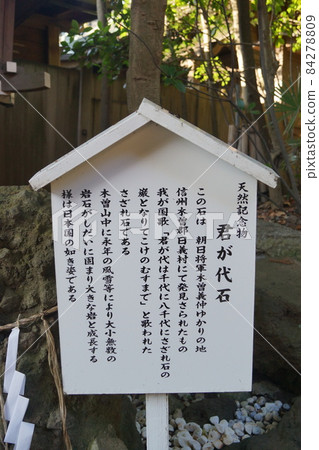 天然記念物
君が代石
この石は 朝日将軍木曽義仲ゆかりの地
信州木曽郡日義村にて発見されたもの
我が国歌「君が代は千代に八千代にさざれ石の
巌となりてこけのむすまで」と歌われた
さざれ石である
木曽山中に永年の風雪等により大小無数の
岩石がしだいに固まり大きな岩と成長する
様は日本国の如き姿である
84278809